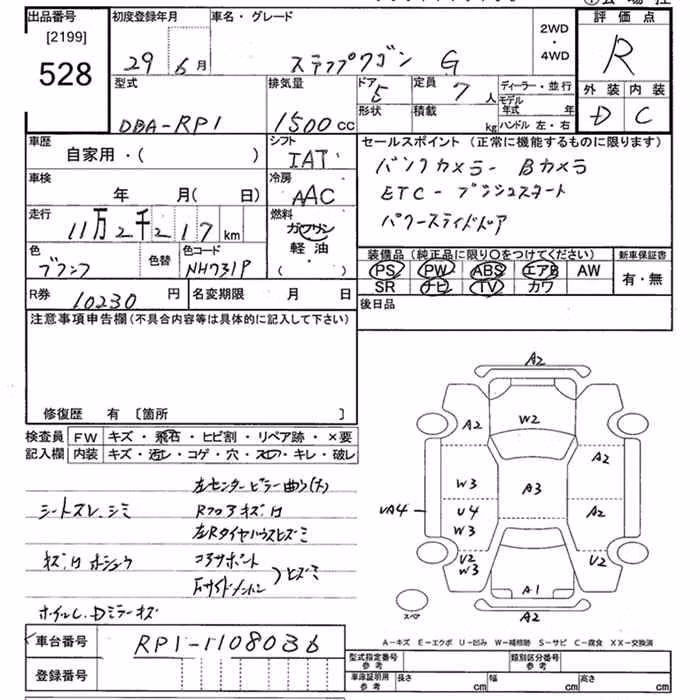 出品番号 初度登録年月 車名・グレード 評価点
[2199] 29 6月 ステップワゴン G 2WD・4WD R
528 型式 排気量 ドア 5 定員 7人 ディーラー・並行 外装 内装
DBA-RP1 1500cc 形状 積載 kg モデル年式 年 ハンドル 左・右 D C
車歴 シフト セールスポイント (正常に機能するものに限ります)
自家用・( ) IAT バックカメラ- Bカメラ
車検 冷房 ETC- プッシュスタート
年 月( 日) AAC パワースライドドア
走行 11万2千217km 燃料 ガソリン・軽油・( )
色 色替 色コード 装備品 (純正品に限り○をつけてください) 新車保証書
ブラック NH731P PS PW ABS エアB AW 有・無
SR ナビ TV カワ
R券 10230円 名変期限 月 日 後日品
注意事項申告欄 (不具合内容等は具体的に記入して下さい)
修復歴 有 〔箇所 〕
検査員 FW キズ・飛石・ヒビ割・リペア跡・×要
記入欄 内装 キズ・汚レ・コゲ・穴・スレ・キレ・破レ
左センターピラー曲り(大)
シートスレ、シミ Rフロアキズ有
左Rタイヤハウスヒズミ
キズ、凹 ホシュウ コアサポート
Fサイドメンバー )ヒズミ
ホイールし、Dミラーキズ
A2
A2 W2 A2
W3 A3
UA4 U4 A2
W3
U2 W3 A1 U2
スペア A2
A-キズ E-エクボ U-凹み W-補修跡 S-サビ C-腐食 XX-交換済
車台番号 RP1-1108036
型式指定番号 参考 類別区分番号 参考
登録番号 車庫証明用 参考 長さ cm 幅 cm 高さ cm